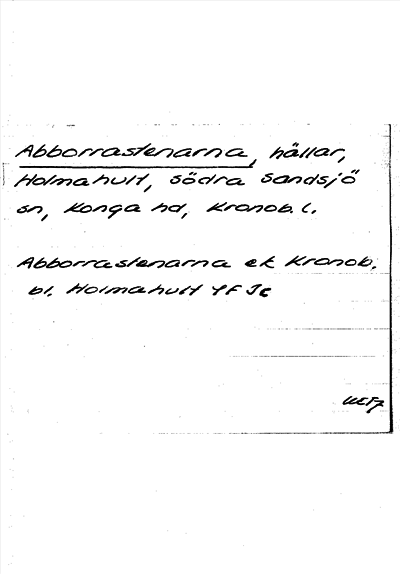 Abborrastenarna, hällar,
Holmahult, södra Sandsjö
sn, Konga hd, Kronob. l.
Abborrastenarna ek Kronob.
bl. Holmahult 4F Jc